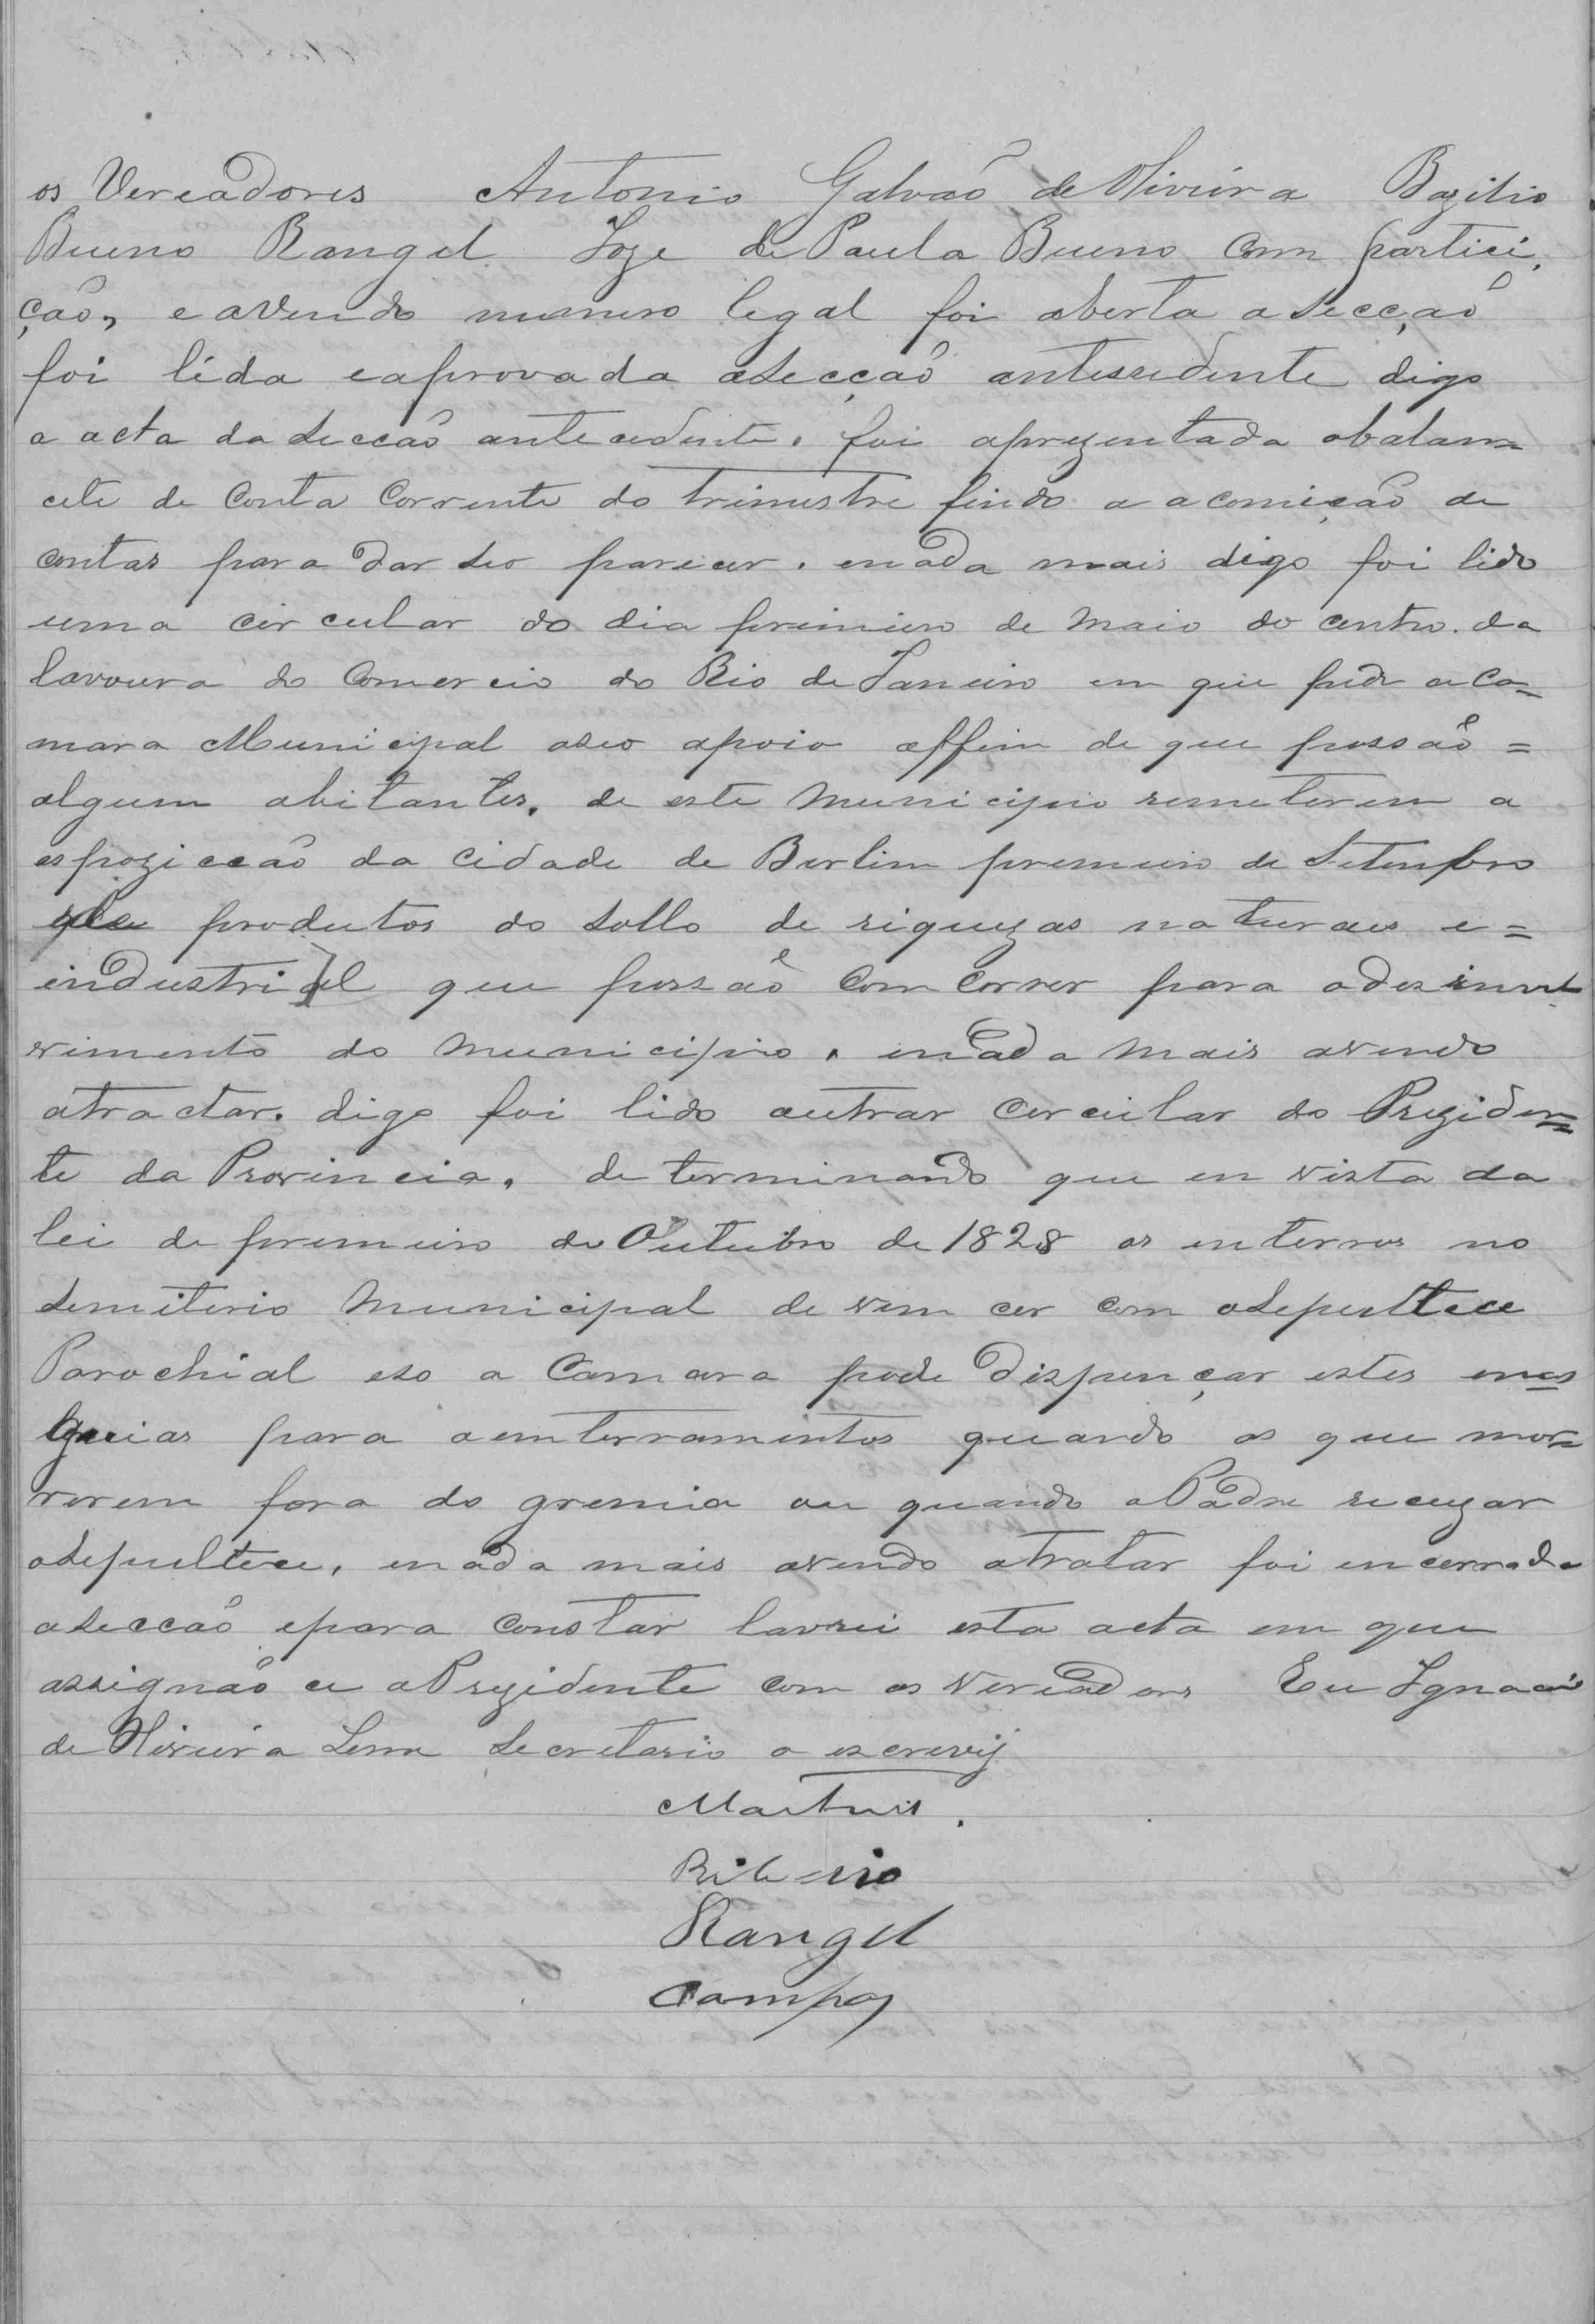 os Vereadores Antonio Galvaõ de Oliveira Bazilio
Bueno Rangel Joze de Paula Bueno com partici,
çaõ, e avendo numero legal foi aberta a secçaõ
foi lida e aprovada a secçaõ antessedente digo
a acta da secçaõ antecedente. foi aprezentada o balan=
cete de Conta Corrente do trimestre findo a a comiçaõ de
contas para dar seo parecer. e nada mais digo foi lido
uma circular do dia primeiro de Maio do centro da
lavoura do Comercio do Rio de Janeiro em que pede a Ca=
mara Municipal o seo apoio affim de que possaõ =
algum abitantes. de este Municipio remeterem a
espozicçaõ da cidade de Berlim premeiro de Setembro
produtos do sollo de riquezas naturaes e =
industrial que possaõ comcorrer para o desinvol
vimento do Municipio. e nada mais avendo
a tractar. digo foi lido outrar cercular do Preziden=
te da Provincia. determinando que em vista da
lei de premeiro de Outubro de 1828 os enterros no
semiterio Municipal devem cer com o sepultece
Parochial e so a Camara pode dispençar estes
guias para a emterramentos quando os que mor=
rerem fora do gremia ou quando o Padre recuzar
o sepultece. e nada mais avendo a tratar foi encerrada
a secçaõ e para constar lavrei esta acta em que
assignaõ o Prezidente com os Vereadores Eu Ignacio
de Oliveira Leme Secretario o escrevij
Martins.
Ribeiro
Rangel
Campos